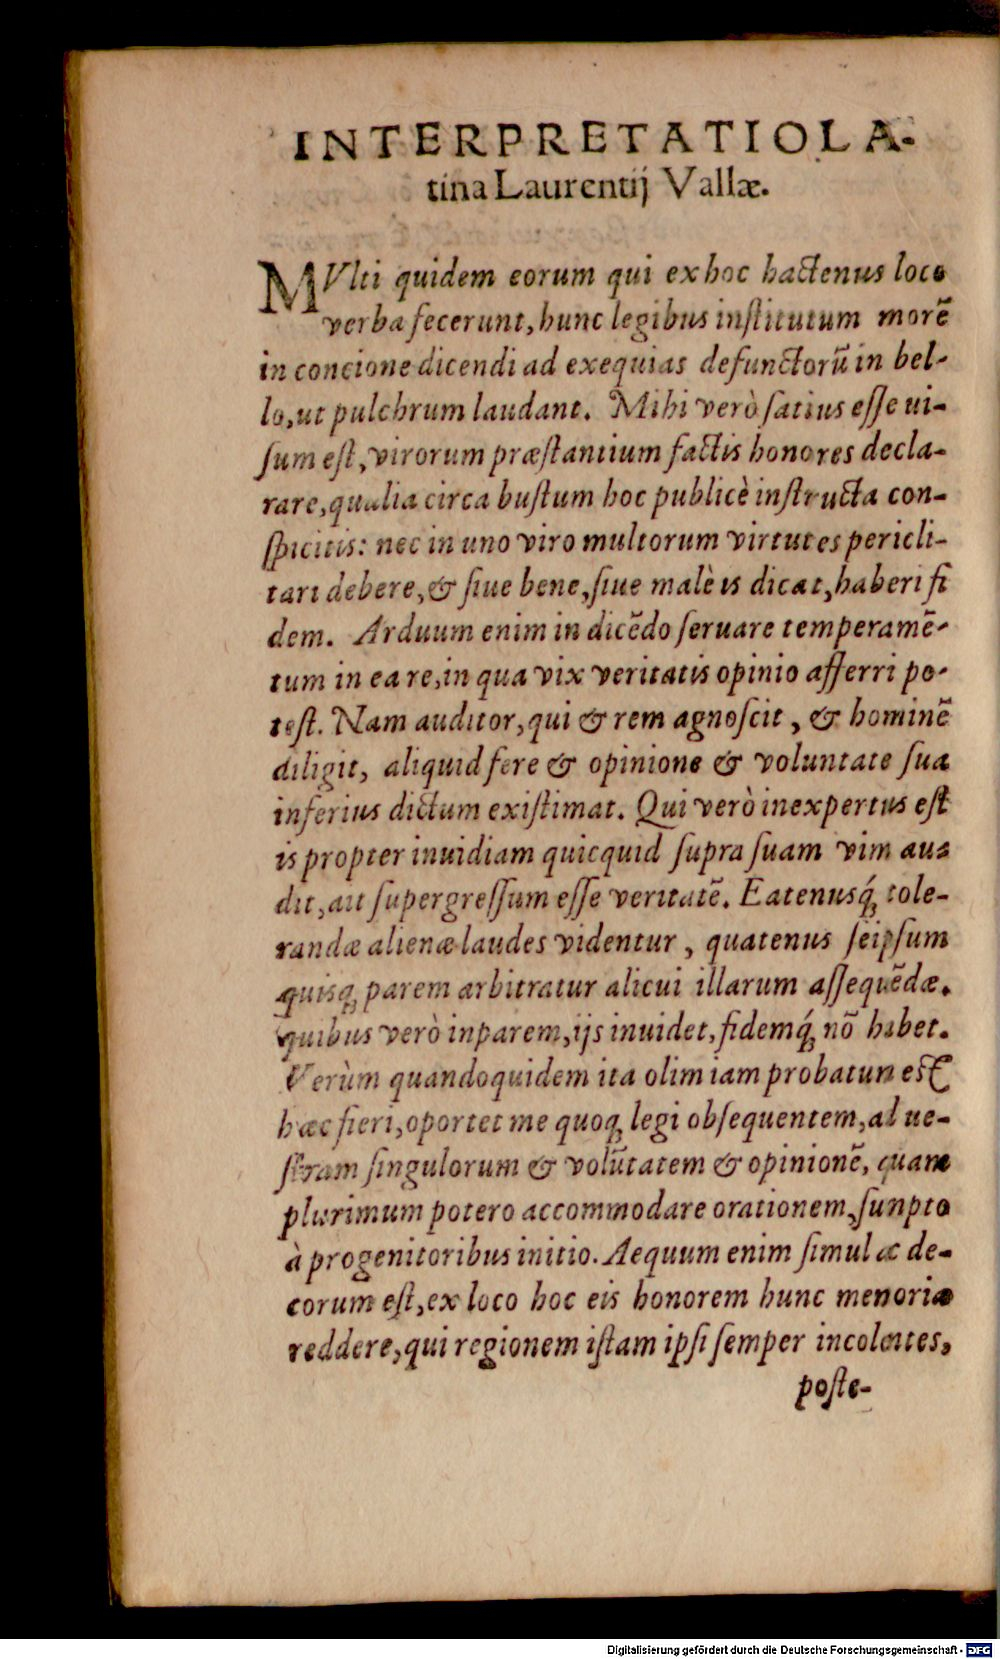 INTERPRETATIO LA-
tina Laurentij Vallæ.
MVlti quidem eorum qui ex hoc hactenus loco
verba fecerunt, hunc legibus institutum morē
in concione dicendi ad exequias defunctorū in bel-
lo, ut pulchrum laudant. Mihi verò satius esse ui-
sum est, virorum præstantium factis honores decla-
rare, qualia circa bustum hoc publicè instructa con-
spicitis: nec in uno viro multorum virtutes pericli-
tari debere, & siue bene, siue malè is dicat, haberi fi
dem. Arduum enim in dicēdo seruare temperamē-
tum in ea re, in qua vix veritatis opinio afferri po-
test. Nam auditor, qui & rem agnoscit, & hominē
diligit, aliquid fere & opinione & voluntate sua
inferius dictum existimat. Qui verò inexpertus est
is propter inuidiam quicquid supra suam vim au-
dit, ait supergressum esse veritatē. Eatenusq́ꝫ tole-
randæ alienæ laudes videntur, quatenus seipsum
quisqꝫ parem arbitratur alicui illarum assequēdæ.
quibus verò inparem, ijs inuidet, fidemq́ꝫ nō habet.
Verùm quandoquidem ita olim iam probatum est
hæc fieri, oportet me quoqꝫ legi obsequentem, ad ue-
stram singulorum & volūtatem & opinionē, quam
plurimum potero accommodare orationem, sunpto
à progenitoribus initio. Aequum enim simul ac de-
corum est, ex loco hoc eis honorem hunc memoriæ
reddere, qui regionem istam ipsi semper incolentes,
poste-
Digitalisierung gefördert durch die Deutsche Forschungsgemeinschaft - DFG